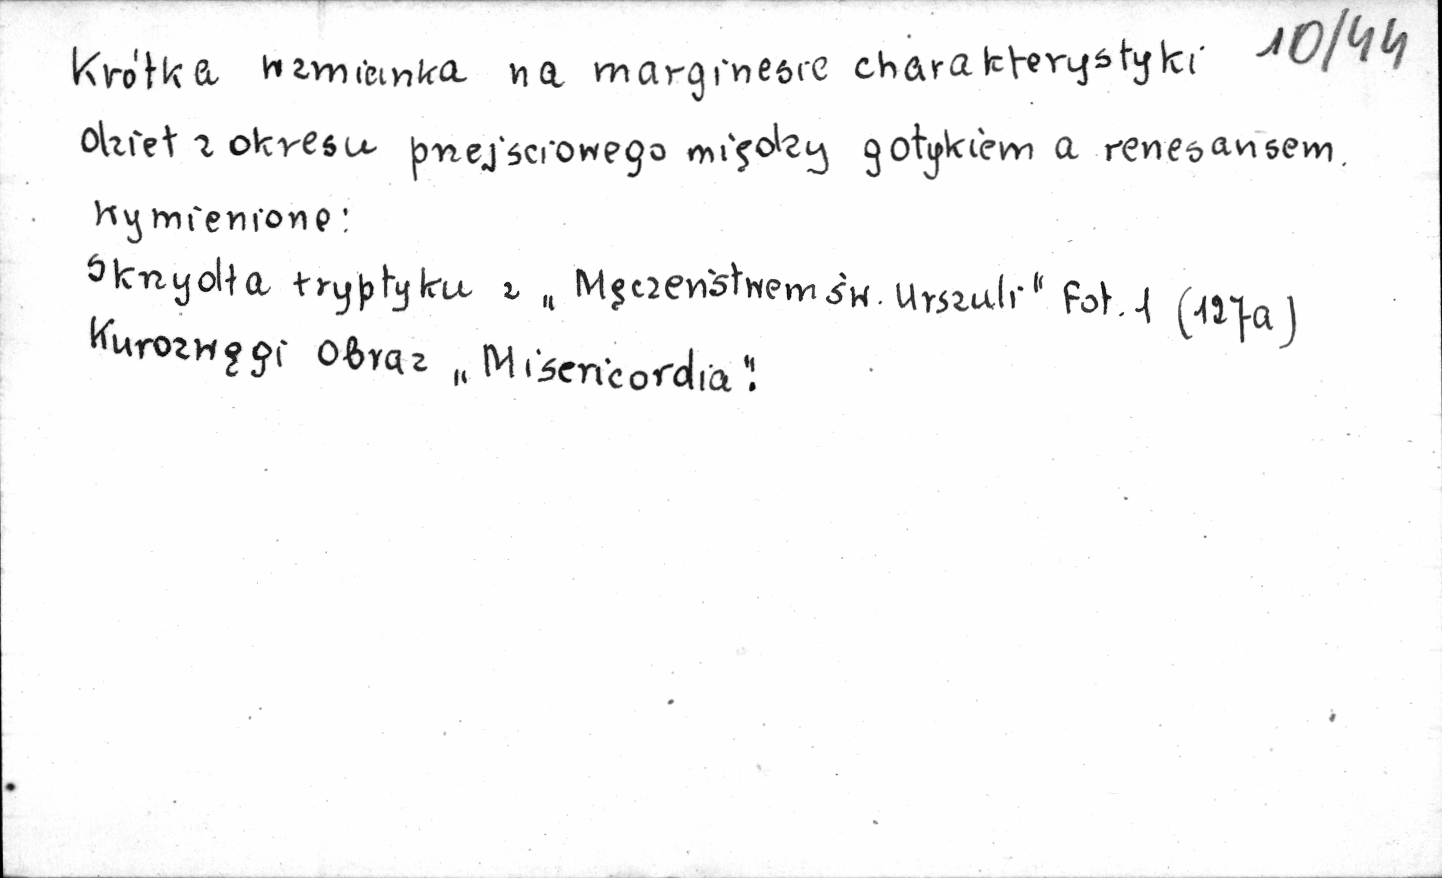 10/44
Krótka wzmianka na marginesie charakterystyki
dzieł z okresu przejściowego między gotykiem a renesansem.
Wymienione:
Skrzydła tryptyku z „Męczeństwem św. Urszuli" Fot. 1 (127a)
Kurozwęgi Obraz „Misericordia".